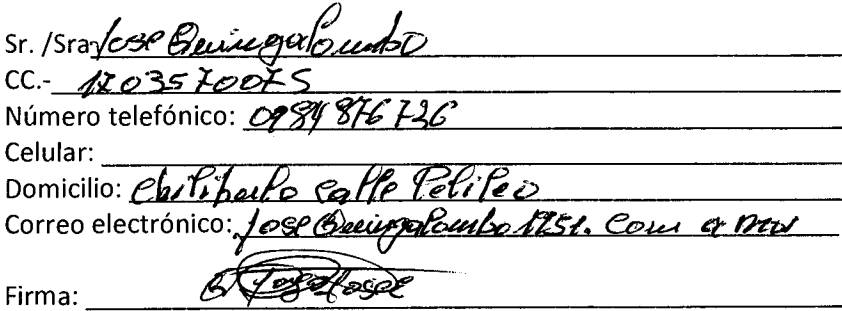 Sr. /Sra Jose Quingalombo
CC.- 1703570075
Número telefónico: 0984876726
Celular:
Domicilio: Chilibulo calle Pelileo
Correo electrónico: Jose Quingalombo 1751. Com
Firma: